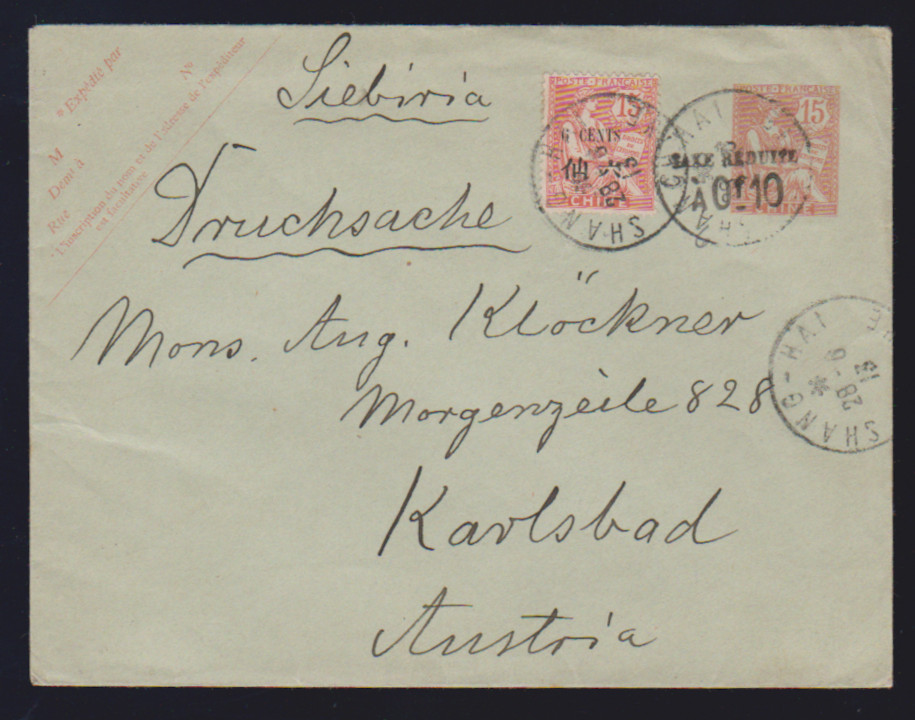 * Expédié par
M
Dem^t à
Rue N°
* L'inscription du nom et de l'adresse de l'expéditeur
est facultative
Siebiria
POSTE FRANÇAISE
15
6 CENTS
CHINE
POSTE FRANÇAISE
15
TAXE RÉDUITE
À 0f10
CHINE
SHANG-HAI
28 - 9
13
SHANG-HAI
SHANG-HAI
28 - 9
13
Drucksache
Mons. Aug. Klöckner
Morgenzeile 828
Karlsbad
Austria